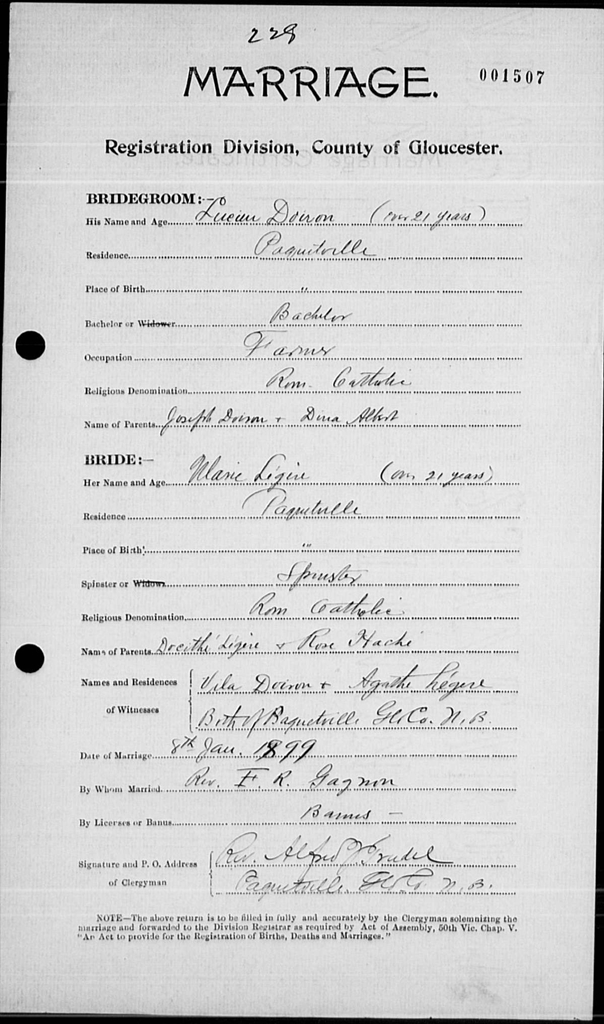 228
MARRIAGE. 001507
Registration Division, County of Gloucester.
BRIDEGROOM:—
His Name and Age Lucien Doiron (over 21 years)
Residence Paquetville
Place of Birth "
Bachelor or Widower Bachelor
Occupation Farmer
Religious Denomination Rom. Catholic
Name of Parents Joseph Doiron + Dina Albert
BRIDE:—
Her Name and Age Marie Légère (over 21 years)
Residence Paquetville
Place of Birth "
Spinster or Widow Spinster
Religious Denomination Rom Catholic
Name of Parents Docithé Légère + Rose Haché
Names and Residences of Witnesses
Vila Doiron + Agathe Légere
Both of Paquetville Glo Co. N. B.
Date of Marriage 8th Jan. 1899
By Whom Married Rev. F. R. Gagnon
By Licenses or Banns Banns —
Signature and P. O. Address of Clergyman
Rev. Alfred Trudel
Paquetville Glo Co. N. B.
NOTE—The above return is to be filled in fully and accurately by the Clergyman solemnizing the
marriage and forwarded to the Division Registrar as required by Act of Assembly, 50th Vic. Chap. V.
"An Act to provide for the Registration of Births, Deaths and Marriages."